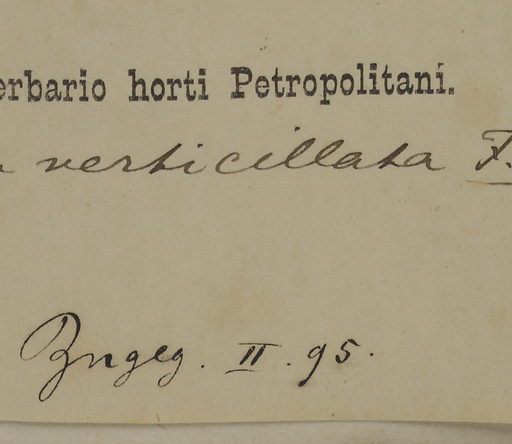 erbario horti Petropolitani.
a verticillata F.
Bngeg. II. 95.